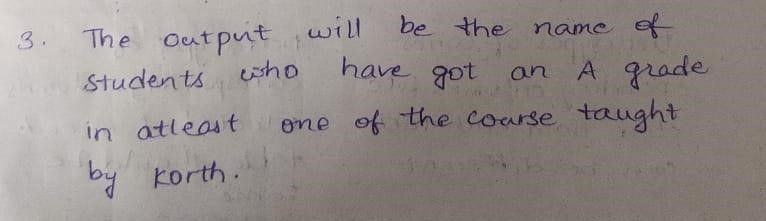 3. The output will be the name of
students who have got an A grade
in atleast one of the course taught
by Korth.